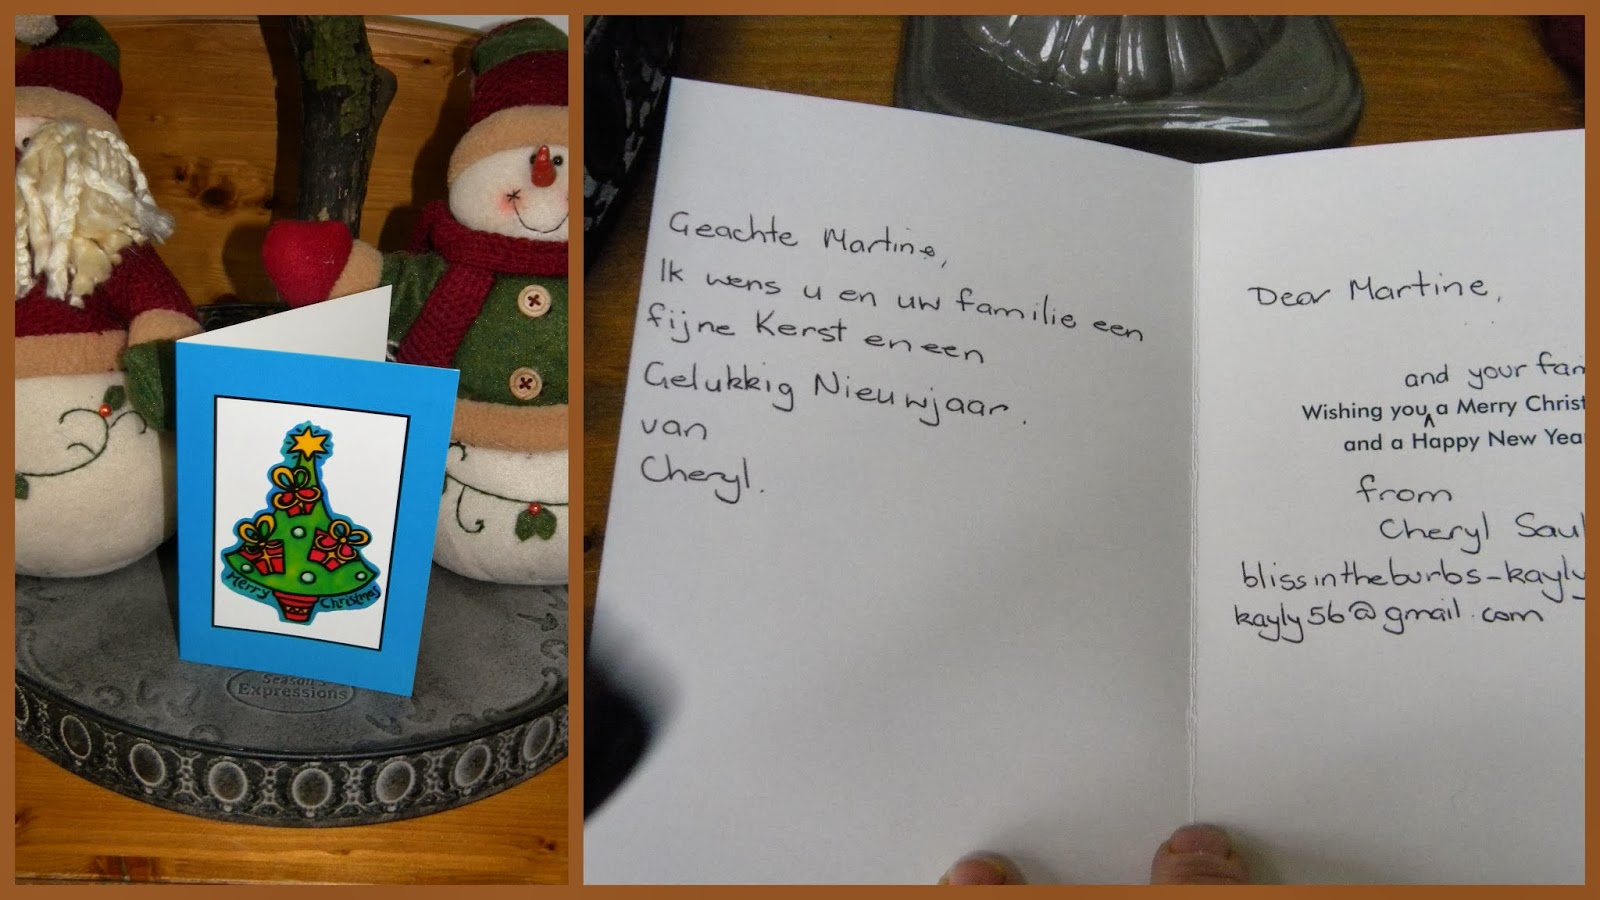 Merry Christmas
Season's
Expressions
Geachte Martine,
Ik wens u en uw familie een
fijne Kerst en een
Gelukkig Nieuwjaar.
van
Cheryl.
Dear Martine,
and your
Wishing you a Merry
and a Happy New
from
Cheryl
blissintheburbs-kayly
kayly56@gmail.com